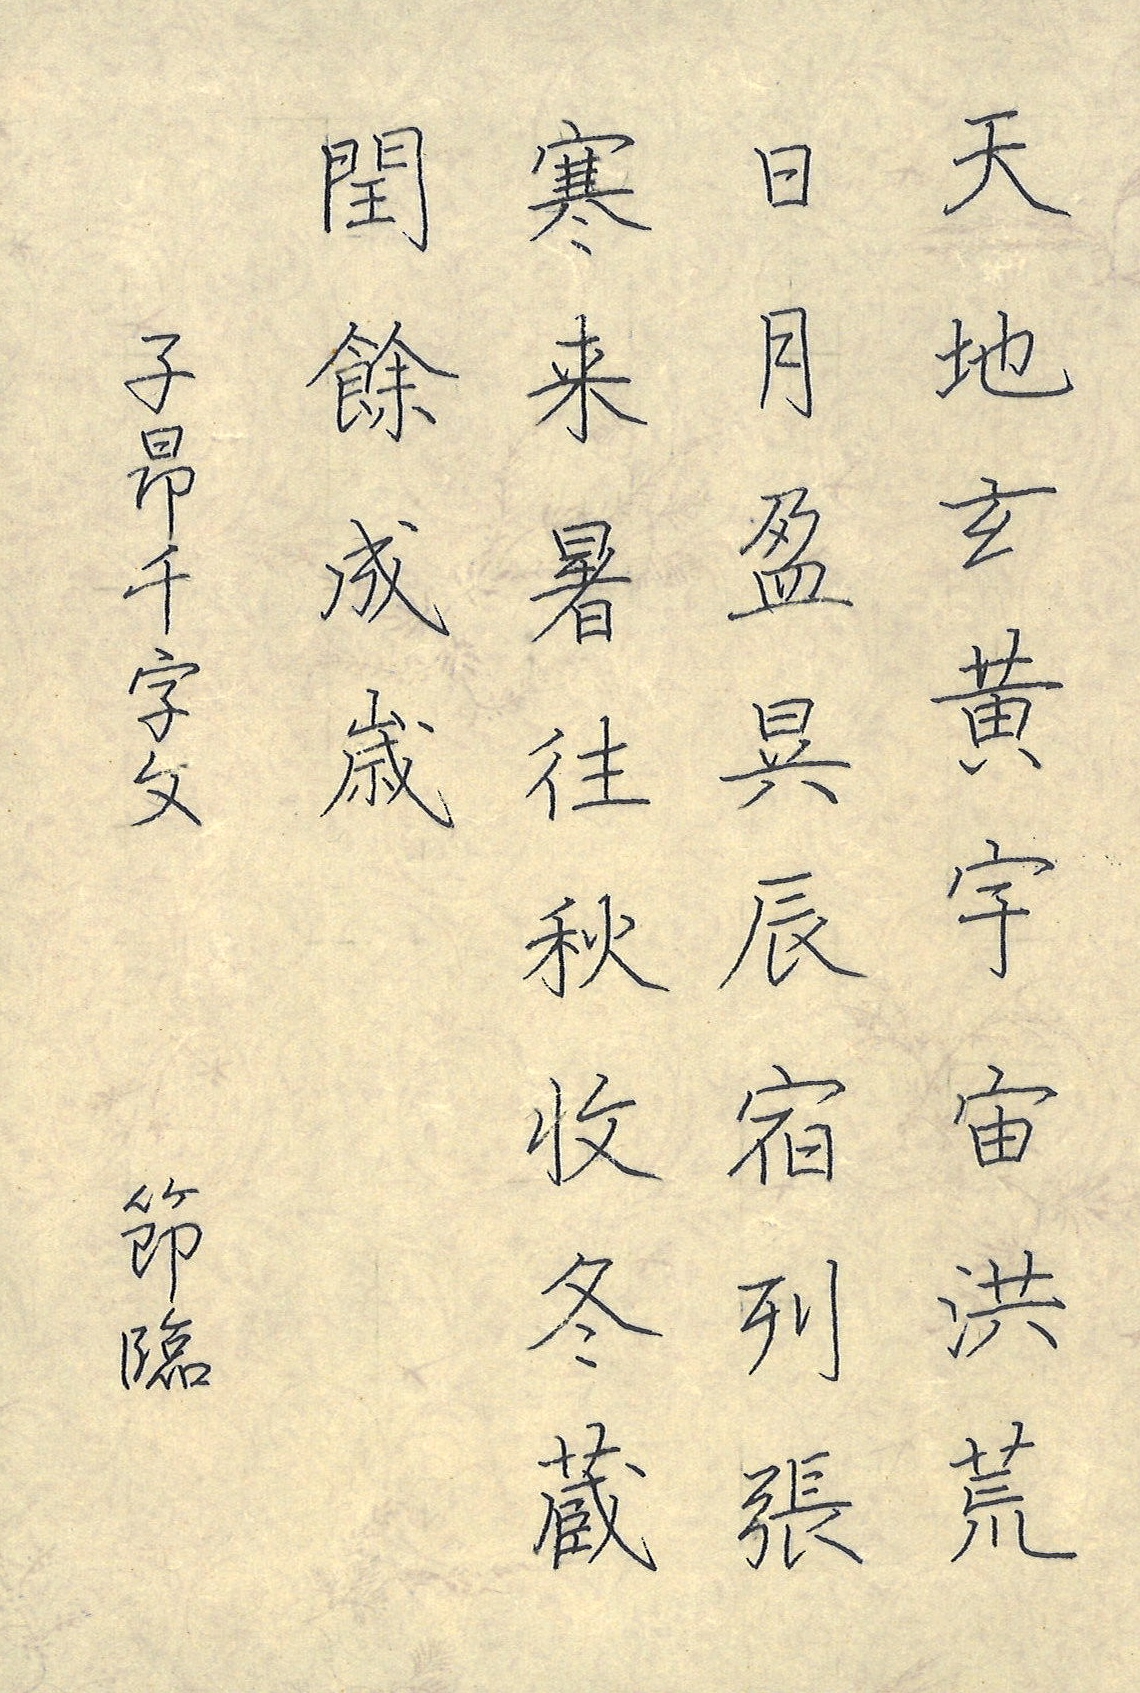 天地玄黃宇宙洪荒
日月盈昃辰宿列張
寒来暑往秋收冬蔵
閏餘成歳
子昂千字文 節臨